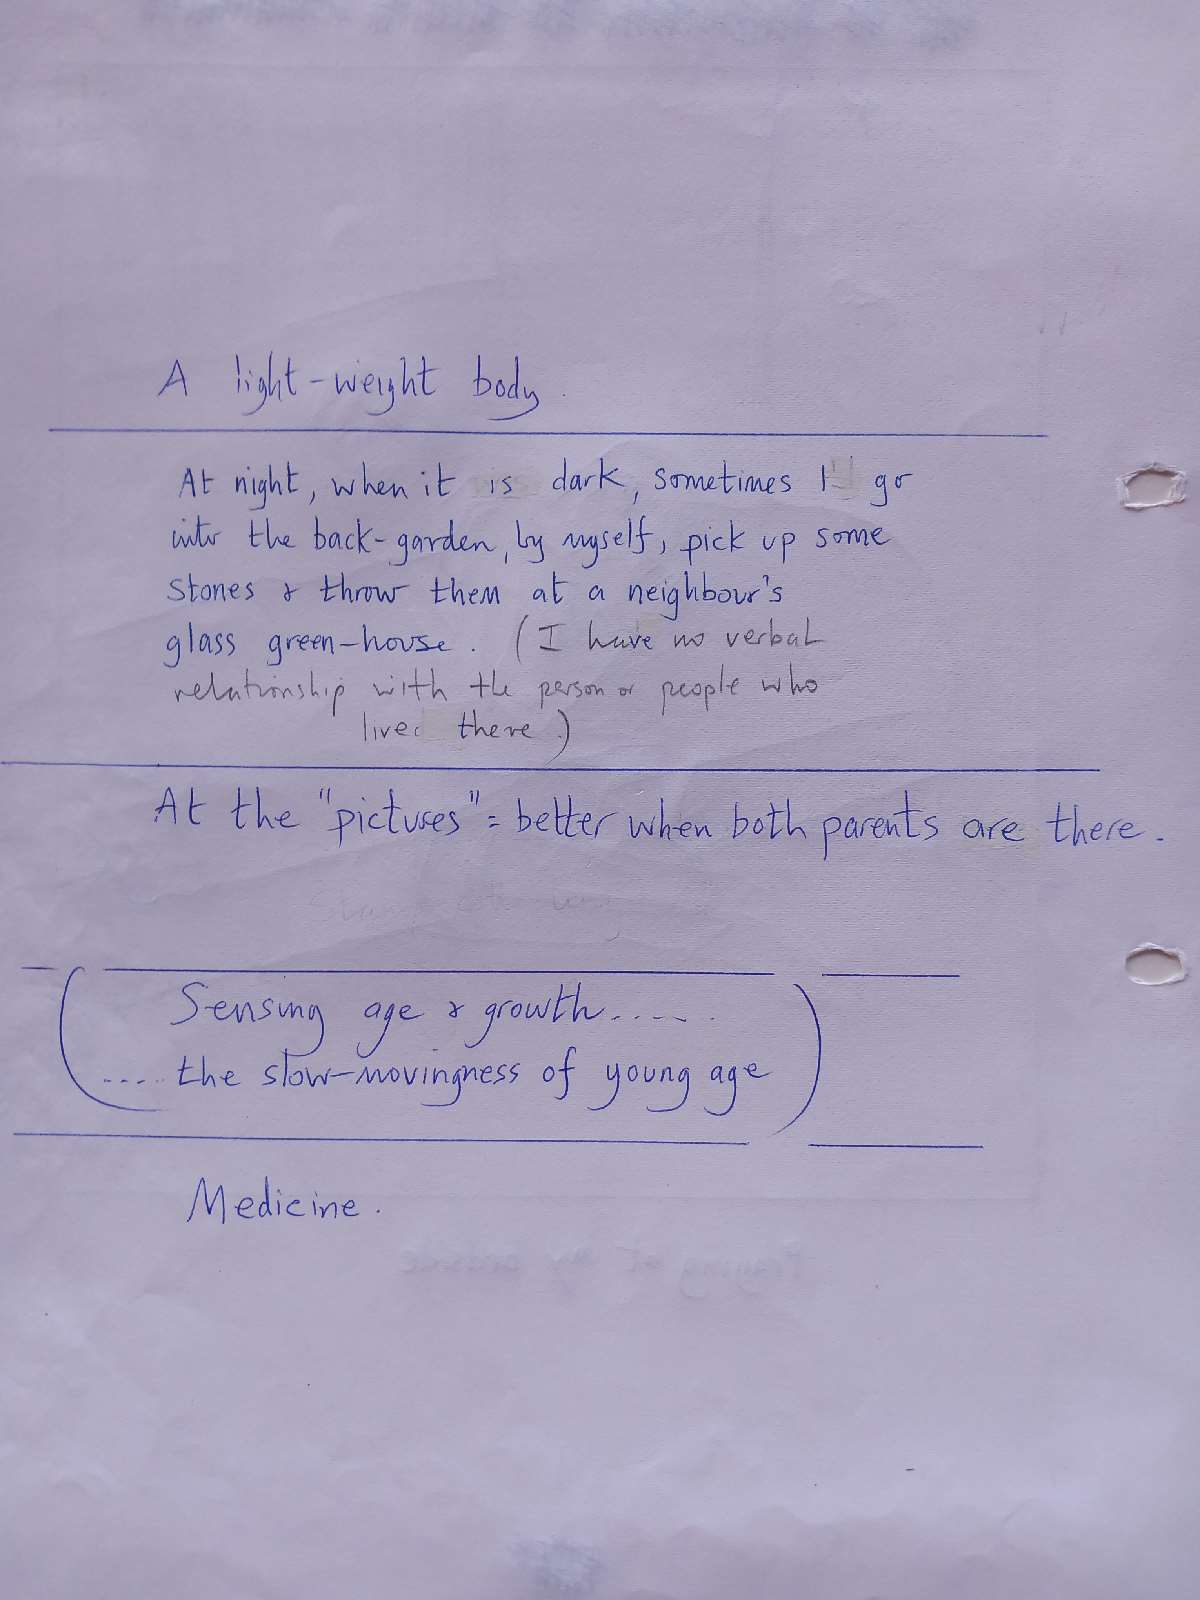 A light-weight body.
At night, when it is dark, sometimes I go
into the back-garden, by myself, pick up some
stones & throw them at a neighbour's
glass green-house. (I have no verbal
relationship with the person or people who
live there.)
At the "pictures" = better when both parents are there.
(Sensing age & growth.....
..... the slow-movingness of young age)
Medicine.